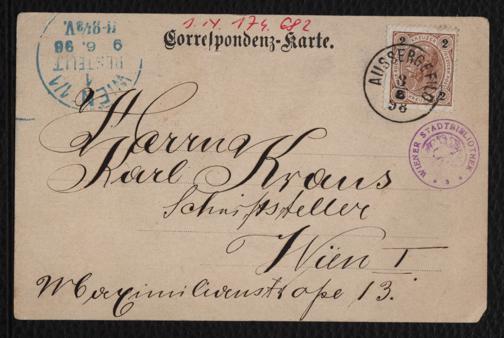 I.N. 174.682
Correspondenz-Karte.
WIEN 1/1
1
BESTELLT
9. 6. 98
8-9½V.
2 2
2 2
AUSSERGEFILD
8
6
98
WIENER STADTBIBLIOTHEK
Herrn
Karl Kraus
Schriftsteller
Wien I
Maximilianstraße 13.